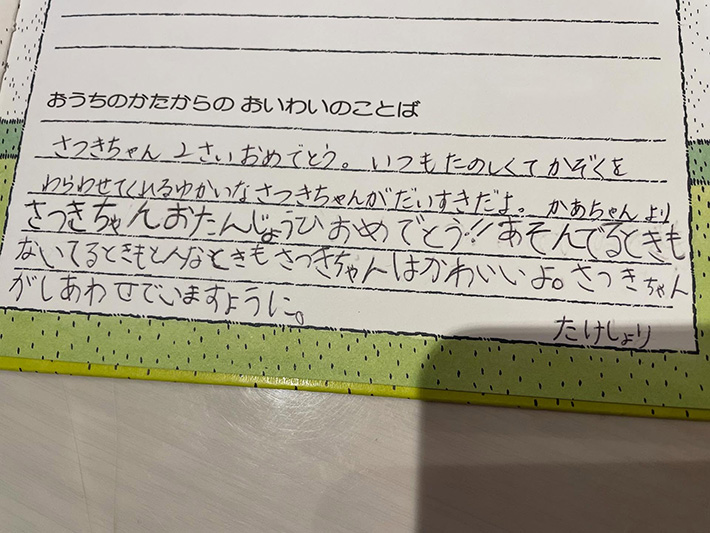 おうちのかたからの おいわいのことば
さつきちゃん 2さいおめでとう。いつもたのしくてかぞくを
わらわせてくれるゆかいなさつきちゃんがだいすきだよ。 かあちゃんより
さつきちゃんおたんじょうびおめでとう!!あそんでるときも
ないてるときもどんなときもさつきちゃんはかわいいよ。さつきちゃん
がしあわせでいますように。
たけしより